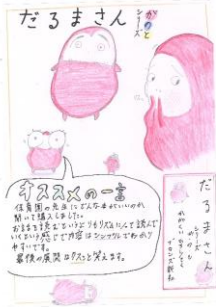 だるまさん
がのと
シリーズ
オススメの一言
保育園の先生にどんな本がいいのか
聞いて購入しました。
お話を読むというよりもリズムにのって読んで
いくという感じで内容はシンプルでわかり
やすいです。
最後の展開はクスッと笑えます。
だるまさん
ブロンズ新社